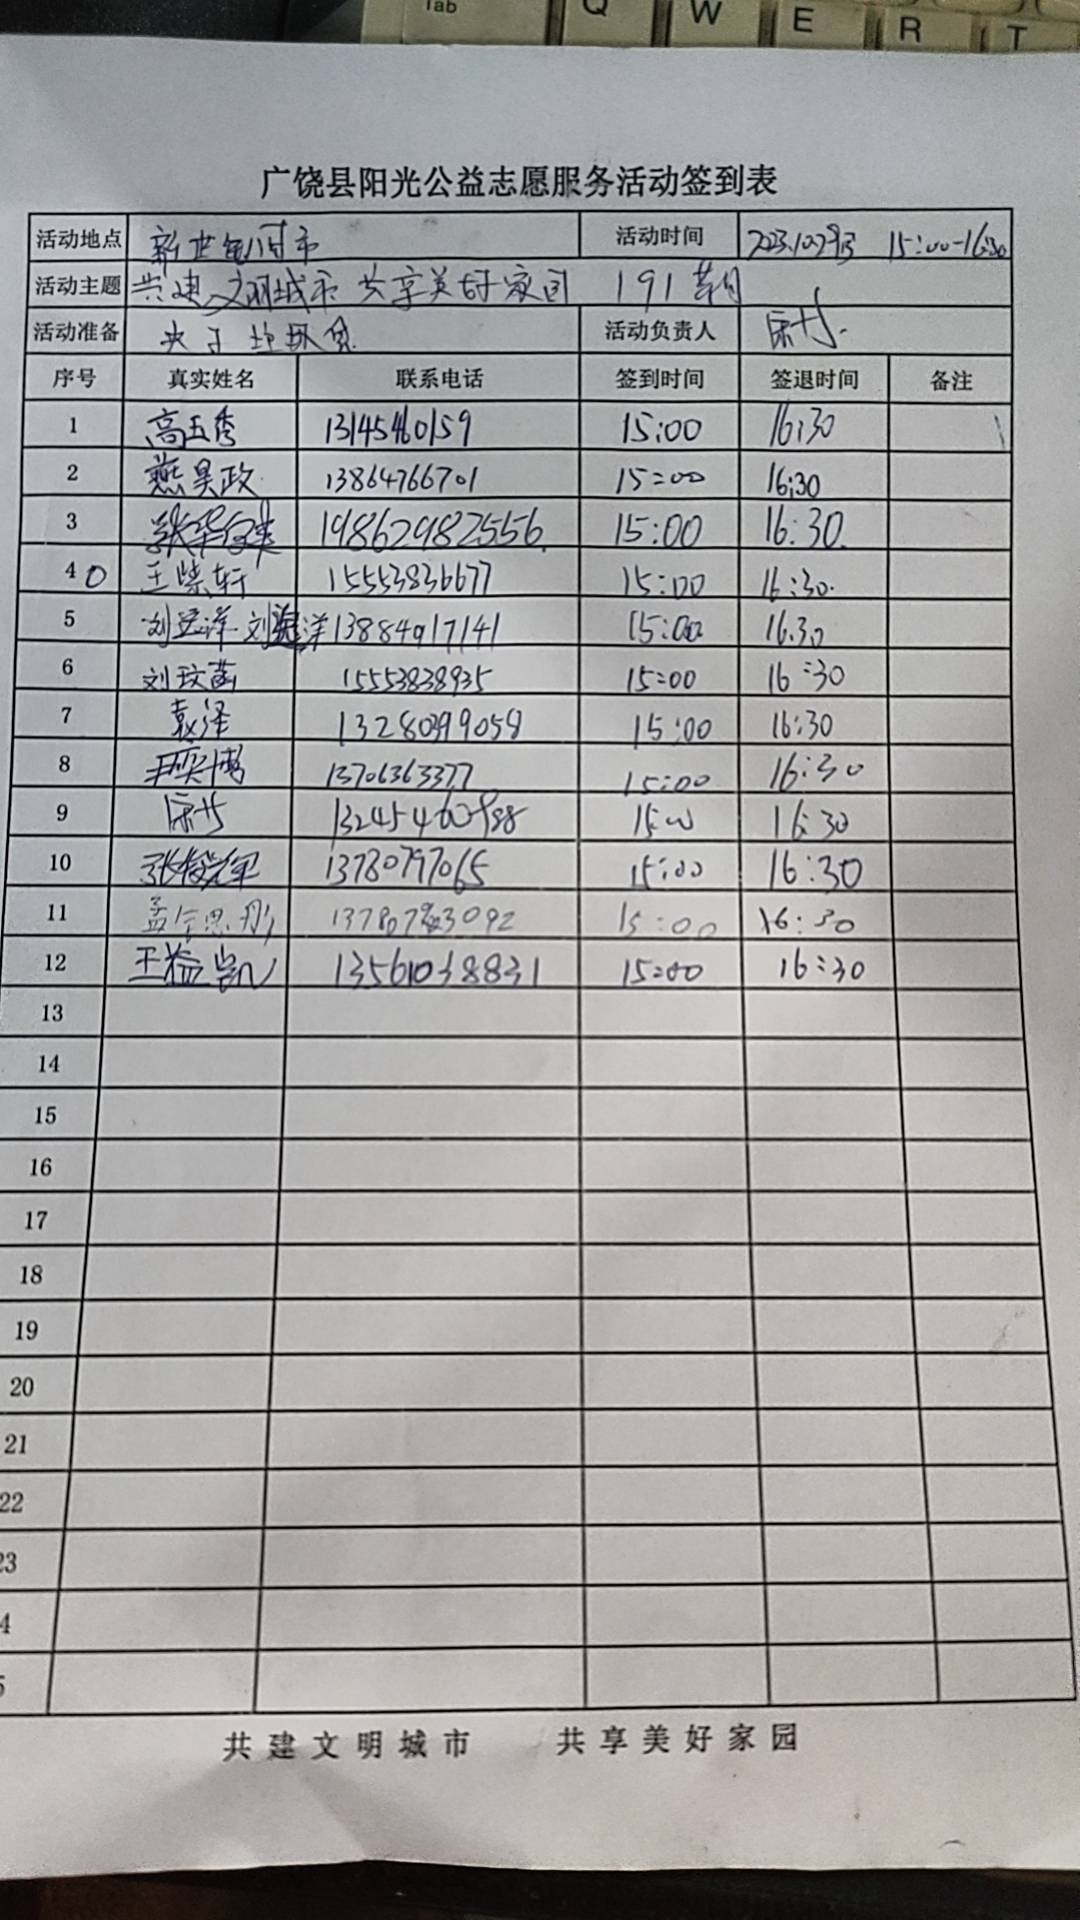 Tab Q W E R T
广饶县阳光公益志愿服务活动签到表
活动地点 新世纪门市 活动时间 15:00-16:30
活动主题 共建文明城市 共享美好家园 191
活动准备 夹子 垃圾袋 活动负责人
序号 真实姓名 联系电话 签到时间 签退时间 备注
1 高玉秀 13145460159 15:00 16:30
2 燕昊政 13864766701 15:00 16:30
3 19862982556 15:00 16:30
4 0 王紫轩 15553836677 15:00 16:30
5 13884917141 15:00 16.30
6 刘玟菡 15553838935 15:00 16:30
7 袁泽 13280399058 15:00 16:30
8 13706363377 15:00 16:30
9 15:00 16:30
10 13780797065 15:00 16:30
11 15:00 16:30
12 王益凯 13561038831 15:00 16:30
13
14
15
16
17
18
19
20
21
22
23
4
5
共建文明城市 共享美好家园